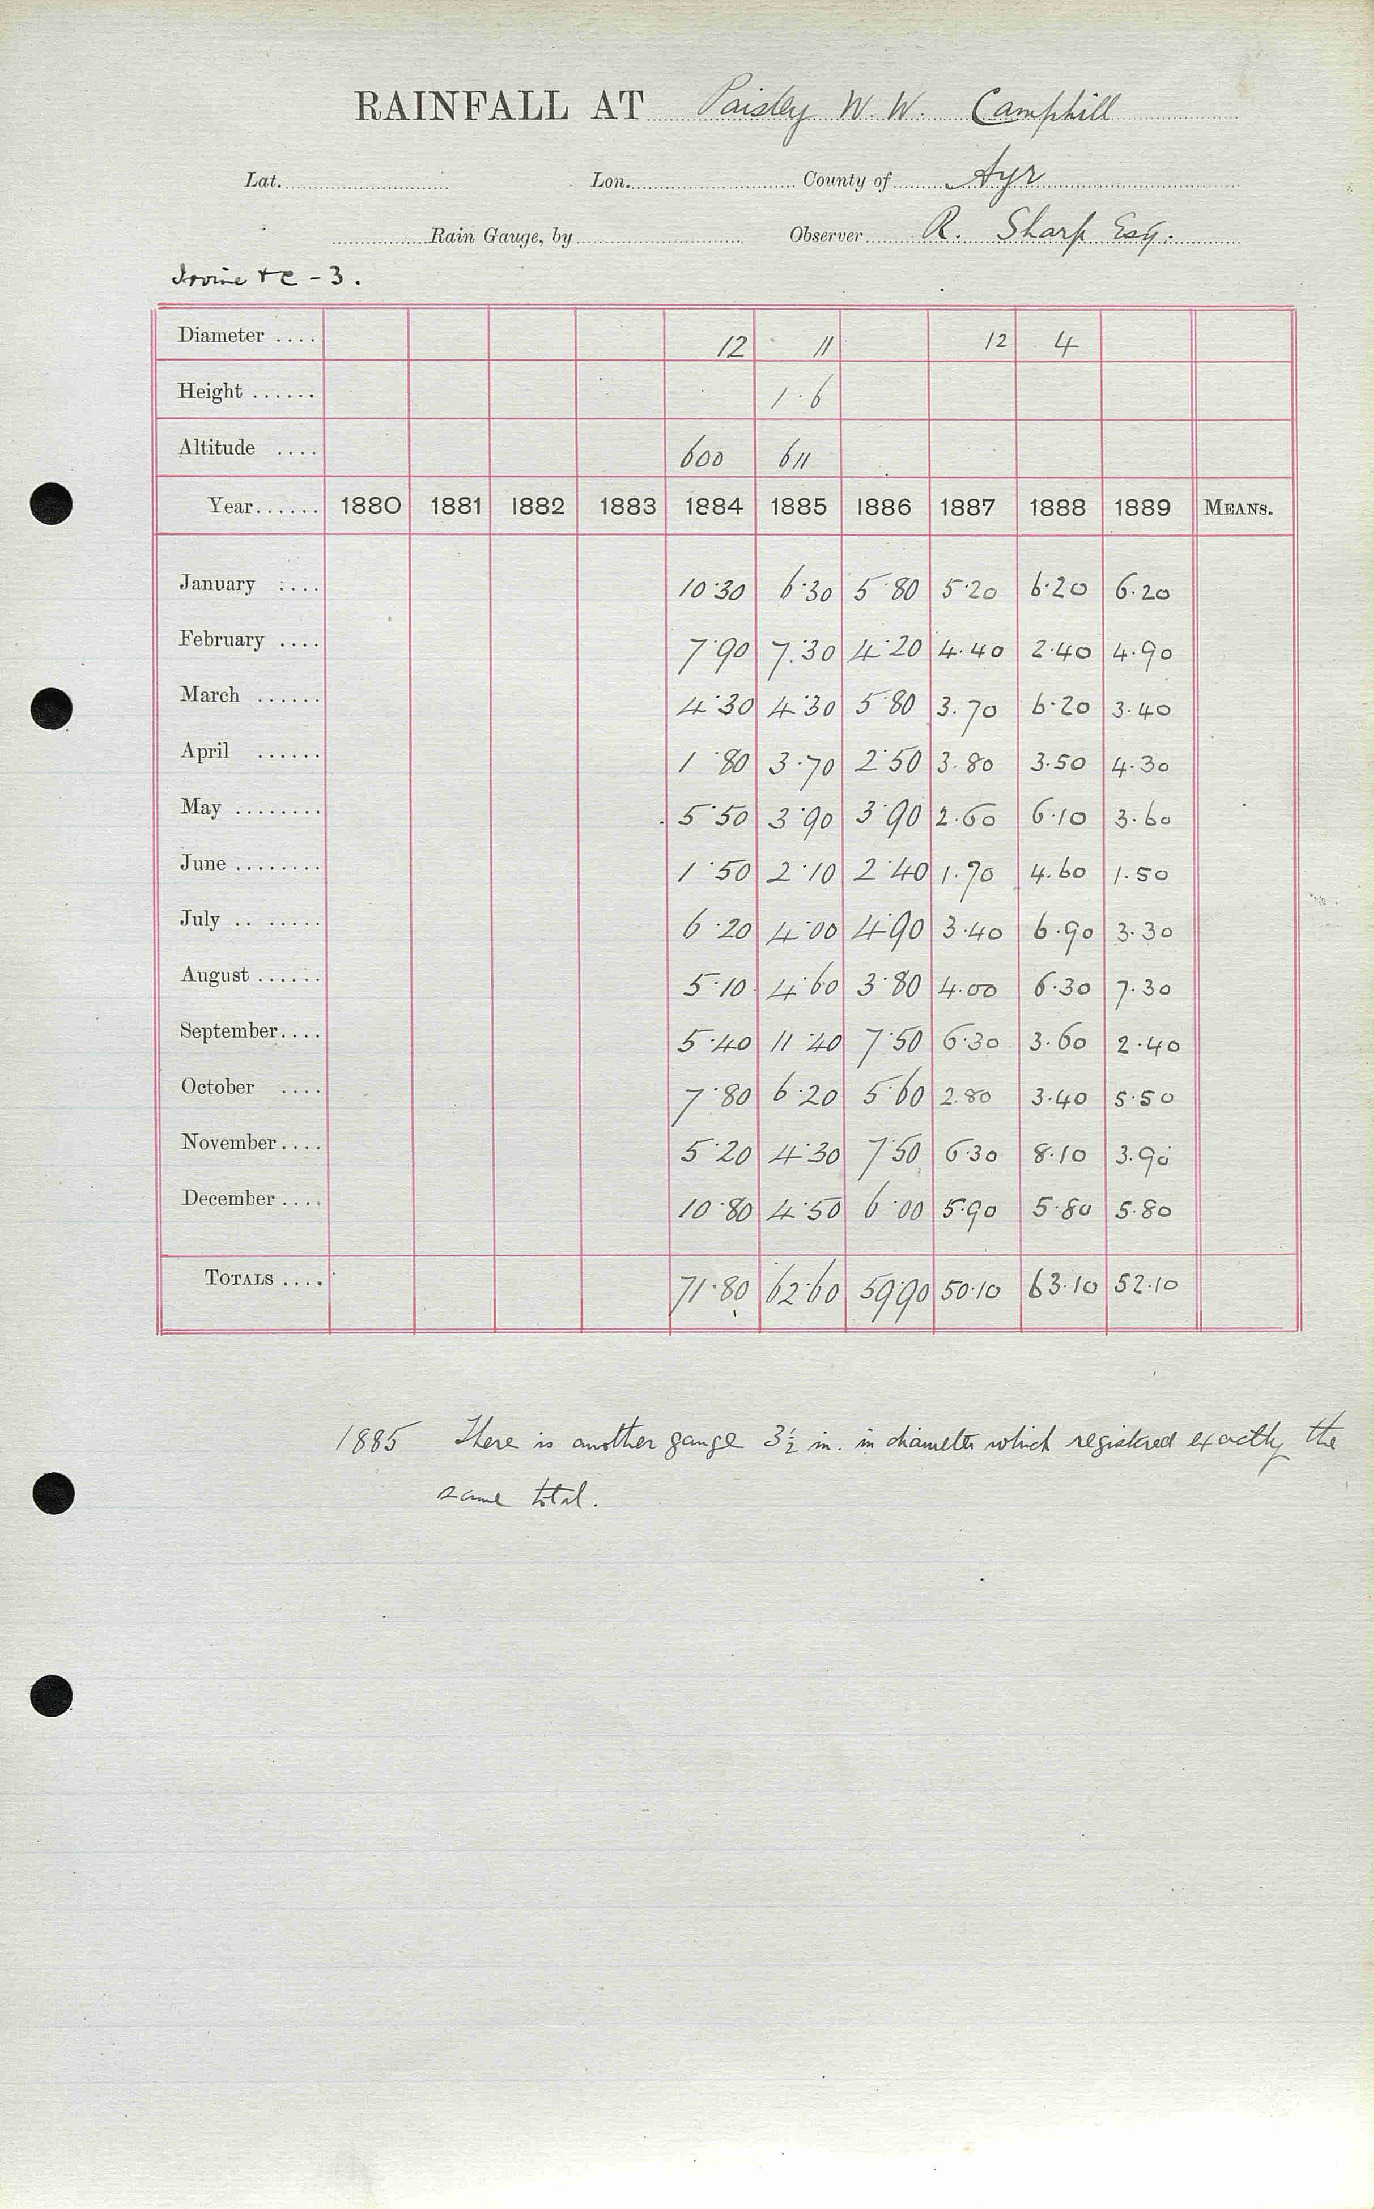 RAINFALL AT Paisley W. W. Camphill
Lat. Lon. County of Ayr
Rain Gauge, by Observer R. Sharp Esq.
Irvine &c - 3.
Diameter .... 12 11 12 4
Height ...... 1·6
Altitude .... 600 611
Year...... 1880 1881 1882 1883 1884 1885 1886 1887 1888 1889 MEANS.
January .... 10·30 6·30 5·80 5·20 6·20 6·20
February .... 7·90 7·30 4·20 4·40 2·40 4·90
March ...... 4·30 4·30 5·80 3·70 6·20 3·40
April ...... 1·80 3·70 2·50 3·80 3·50 4·30
May ........ 5·50 3·90 3·90 2·60 6·10 3·60
June ........ 1·50 2·10 2·40 1·70 4·60 1·50
July .. ..... 6·20 4·00 4·90 3·40 6·90 3·30
August ...... 5·10 4·60 3·80 4·00 6·30 7·30
September.... 5·40 11·40 7·50 6·30 3·60 2·40
October .... 7·80 6·20 5·60 2·80 3·40 5·50
November.... 5·20 4·30 7·50 6·30 8·10 3·90
December.... 10·80 4·50 6·00 5·90 5·80 5·80
TOTALS .... 71·80 62·60 59·90 50·10 63·10 52·10
1885 There is another gauge 3½ in. in diameter which registered exactly the
same total.